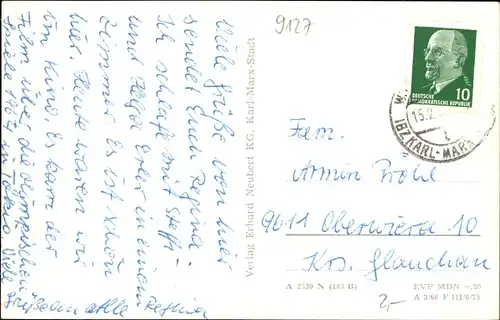 9127
Viele Grüße von hier
sendet Euch Regina.
Ich schlafe mit Steffi
und Helga Erler in einem
Zimmer. Es ist schön
hier. Heute waren wir
im Kino. Es kam der
Film über die olympischen
Spiele 1964 in Tokio. Viele
Grüße an alle Regina
Verlag Erhard Neubert KG, Karl-Marx-Stadt
10
DEUTSCHE
DEMOKRATISCHE REPUBLIK
15.2.
KARL-MARX
Fam.
Armin Pröhl
9611 Oberwiera 10
Krs. Glauchau
A 2539 N (183 B)
EVP MDN -,20
A 2/66 F III/6/75
2,-